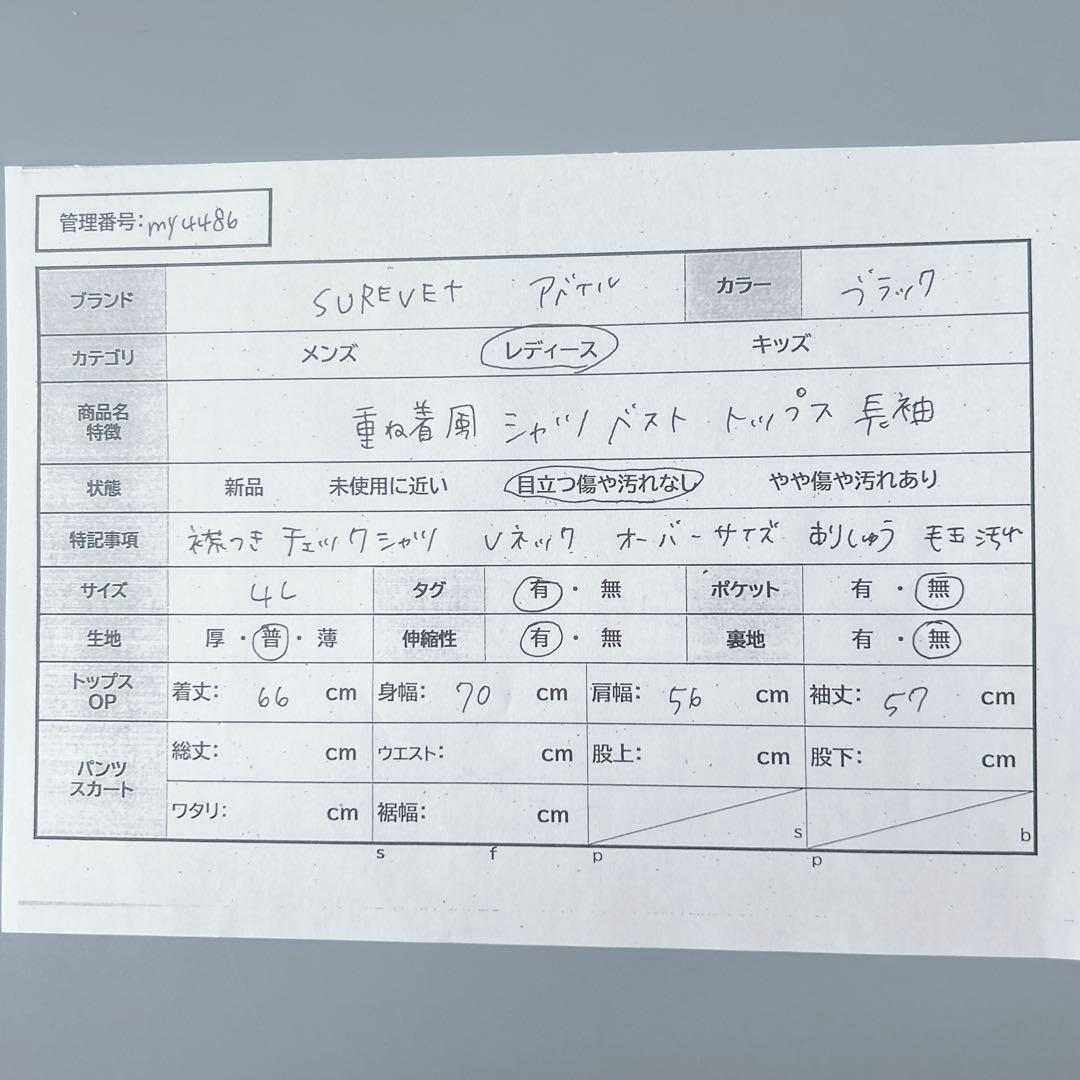 管理番号:my4486
ブランド SUREVEt アベイル カラー ブラック
カテゴリ メンズ レディース キッズ
商品名 特徴 重ね着風 シャツ ベスト トップス 長袖
状態 新品 未使用に近い 目立つ傷や汚れなし やや傷や汚れあり
特記事項 襟つき チェックシャツ Vネック オーバーサイズ ありしゅう 毛玉 汚れ
サイズ 4L タグ 有・無 ポケット 有・無
生地 厚・普・薄 伸縮性 有・無 裏地 有・無
トップス OP 着丈: 66 cm 身幅: 70 cm 肩幅: 56 cm 袖丈: 57 cm
パンツ スカート 総丈: cm ウエスト: cm 股上: cm 股下: cm
ワタリ: cm 裾幅: cm s b
s f p p